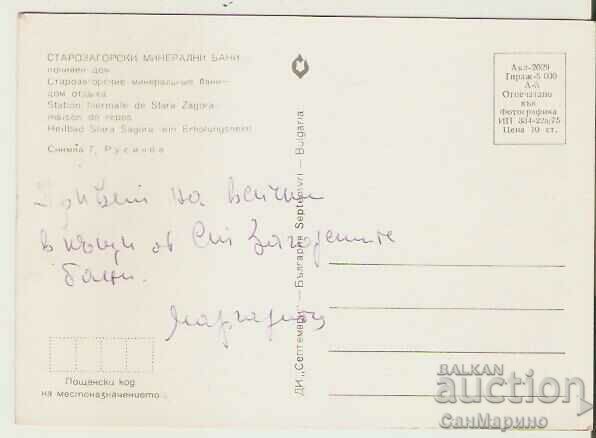 СТАРОЗАГОРСКИ МИНЕРАЛНИ БАНИ
почивен дом
Старозагорские минеральные бани—
дом отдыха
Station thermale de Stara Zagora—
maison de repos
Heilbad Stara Sagora (ein Erholungsheim)
Снимка Г. Русинова
Акл-2029
Тираж-5 000
А-5
Отпечатано
във
Фотографика
ИП 334-228/75
Цена 10 ст.
ДИ „Септември" — България Septemvri — Bulgaria
Привет на всички
в къщи от Ст. Загорските
бани.
Маргарита
Пощенски код
на местоназначението
BALKAN
auction
СанМарино